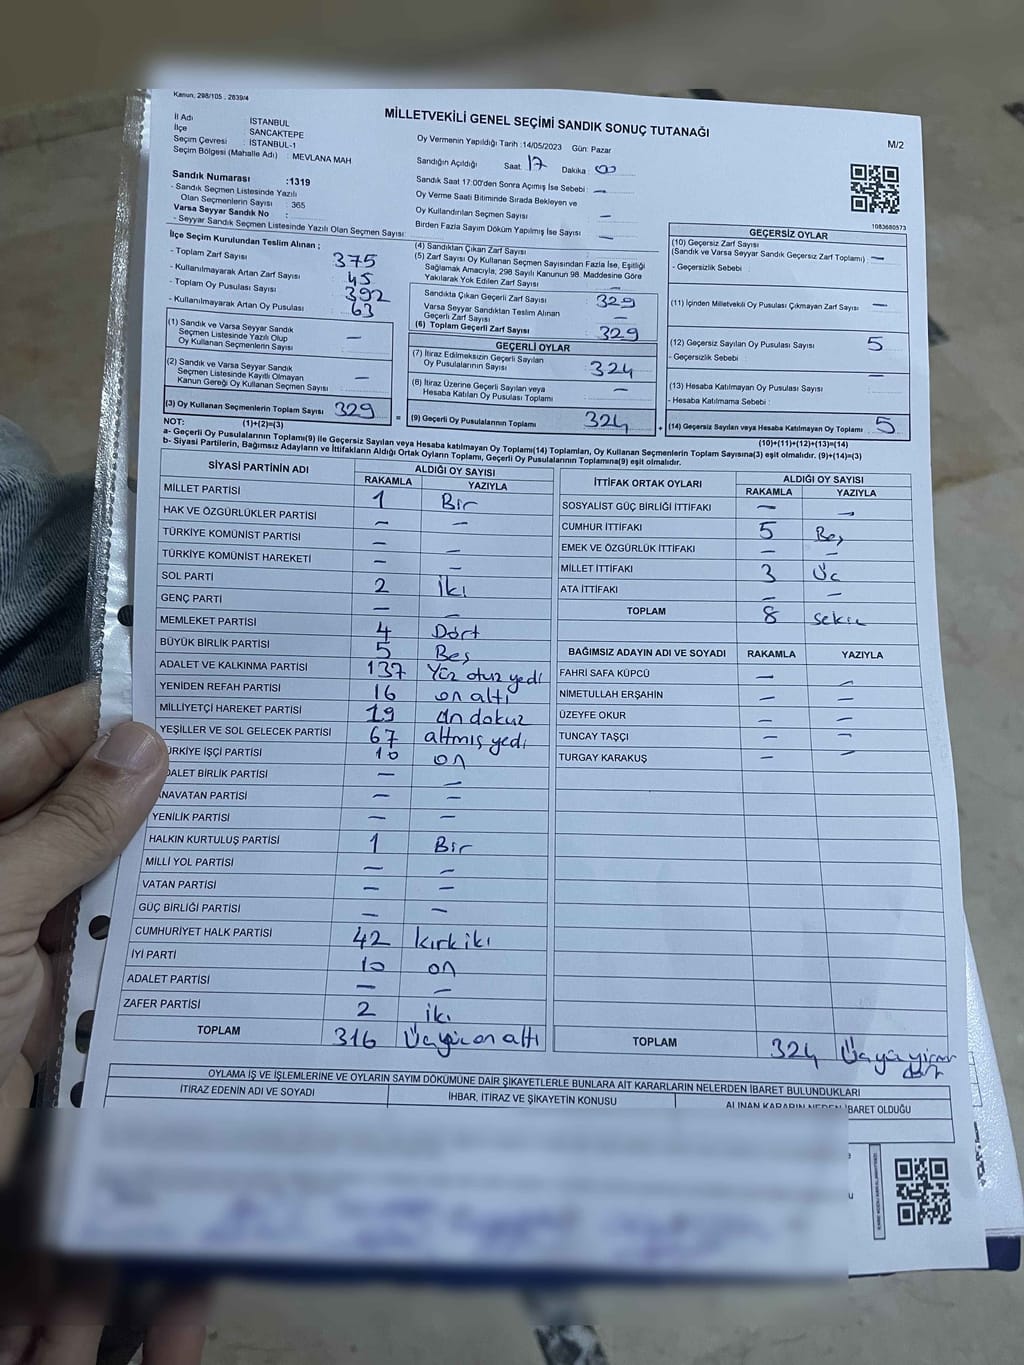 Kanun, 298/105 , 2839/4
MİLLETVEKİLİ GENEL SEÇİMİ SANDIK SONUÇ TUTANAĞI
M/2
İl Adı : İSTANBUL
İlçe : SANCAKTEPE
Seçim Çevresi : İSTANBUL-1
Seçim Bölgesi (Mahalle Adı) : MEVLANA MAH
Sandık Numarası :1319
- Sandık Seçmen Listesinde Yazılı
Olan Seçmenlerin Sayısı : 365
Varsa Seyyar Sandık No :
- Seyyar Sandık Seçmen Listesinde Yazılı Olan Seçmen Sayısı:
Oy Vermenin Yapıldığı Tarih :14/05/2023 Gün: Pazar
Sandığın Açıldığı Saat: 17 Dakika 00
Sandık Saat 17:00'den Sonra Açımış İse Sebebi : —
Oy Verme Saati Bitiminde Sırada Bekleyen ve
Oy Kullandırılan Seçmen Sayısı —
Birden Fazla Sayım Döküm Yapılmış İse Sayısı —
1083680573
İlçe Seçim Kurulundan Teslim Alınan ;
- Toplam Zarf Sayısı 375
- Kullanılmayarak Artan Zarf Sayısı 45
- Toplam Oy Pusulası Sayısı 392
- Kullanılmayarak Artan Oy Pusulası 63
(1) Sandık ve Varsa Seyyar Sandık
Seçmen Listesinde Yazılı Olup
Oy Kullanan Seçmenlerin Sayısı —
(2) Sandık ve Varsa Seyyar Sandık
Seçmen Listesinde Kayıtlı Olmayan
Kanun Gereği Oy Kullanan Seçmen Sayısı —
(3) Oy Kullanan Seçmenlerin Toplam Sayısı 329
(1)+(2)=(3)
(4) Sandıktan Çıkan Zarf Sayısı
(5) Zarf Sayısı Oy Kullanan Seçmen Sayısından Fazla İse, Eşitliği
Sağlamak Amacıyla, 298 Sayılı Kanunun 98. Maddesine Göre
Yakılarak Yok Edilen Zarf Sayısı —
Sandıkta Çıkan Geçerli Zarf Sayısı 329
Varsa Seyyar Sandıktan Teslim Alınan
Geçerli Zarf Sayısı —
(6) Toplam Geçerli Zarf Sayısı 329
GEÇERLİ OYLAR
(7) İtiraz Edilmeksizin Geçerli Sayılan
Oy Pusulalarının Sayısı 324
(8) İtiraz Üzerine Geçerli Sayılan veya
Hesaba Katılan Oy Pusulası Toplamı —
= (9) Geçerli Oy Pusulalarının Toplamı 324
GEÇERSİZ OYLAR
(10) Geçersiz Zarf Sayısı
(Sandık ve Varsa Seyyar Sandık Geçersiz Zarf Toplamı) —
- Geçersizlik Sebebi :
(11) İçinden Milletvekili Oy Pusulası Çıkmayan Zarf Sayısı —
(12) Geçersiz Sayılan Oy Pusulası Sayısı 5
- Geçersizlik Sebebi :
(13) Hesaba Katılmayan Oy Pusulası Sayısı —
- Hesaba Katılmama Sebebi :
+ (14) Geçersiz Sayılan veya Hesaba Katılmayan Oy Toplamı 5
(10)+(11)+(12)+(13)=(14)
NOT:
a- Geçerli Oy Pusulalarının Toplamı(9) ile Geçersiz Sayılan veya Hesaba katılmayan Oy Toplamı(14) Toplamları, Oy Kullanan Seçmenlerin Toplam Sayısına(3) eşit olmalıdır. (9)+(14)=(3)
b- Siyasi Partilerin, Bağımsız Adayların ve İttifakların Aldığı Ortak Oyların Toplamı, Geçerli Oy Pusulalarının Toplamına(9) eşit olmalıdır.
SİYASİ PARTİNİN ADI ALDIĞI OY SAYISI
RAKAMLA YAZIYLA
MİLLET PARTİSİ 1 Bir
HAK VE ÖZGÜRLÜKLER PARTİSİ — —
TÜRKİYE KOMÜNİST PARTİSİ — —
TÜRKİYE KOMÜNİST HAREKETİ — —
SOL PARTİ 2 İki
GENÇ PARTİ — —
MEMLEKET PARTİSİ 4 Dört
BÜYÜK BİRLİK PARTİSİ 5 Beş
ADALET VE KALKINMA PARTİSİ 137 Yüz otuz yedi
YENİDEN REFAH PARTİSİ 16 on altı
MİLLİYETÇİ HAREKET PARTİSİ 19 on dokuz
YEŞİLLER VE SOL GELECEK PARTİSİ 67 altmış yedi
ÜRKİYE İŞÇİ PARTİSİ 10 on
DALET BİRLİK PARTİSİ — —
NAVATAN PARTİSİ — —
YENİLİK PARTİSİ — —
HALKIN KURTULUŞ PARTİSİ 1 Bir
MİLLİ YOL PARTİSİ — —
VATAN PARTİSİ — —
GÜÇ BİRLİĞİ PARTİSİ — —
CUMHURİYET HALK PARTİSİ 42 kırk iki
İYİ PARTİ 10 on
ADALET PARTİSİ — —
ZAFER PARTİSİ 2 iki
TOPLAM 316 Üçyüz on altı
İTTİFAK ORTAK OYLARI ALDIĞI OY SAYISI
RAKAMLA YAZIYLA
SOSYALİST GÜÇ BİRLİĞİ İTTİFAKI — —
CUMHUR İTTİFAKI 5 Beş
EMEK VE ÖZGÜRLÜK İTTİFAKI — —
MİLLET İTTİFAKI 3 Üç
ATA İTTİFAKI — —
TOPLAM 8 sekiz
BAĞIMSIZ ADAYIN ADI VE SOYADI RAKAMLA YAZIYLA
FAHRİ SAFA KÜPCÜ — —
NİMETULLAH ERŞAHİN — —
ÜZEYFE OKUR — —
TUNCAY TAŞÇI — —
TURGAY KARAKUŞ — —
TOPLAM 324 Üçyüz yirmi
dört
OYLAMA İŞ VE İŞLEMLERİNE VE OYLARIN SAYIM DÖKÜMÜNE DAİR ŞİKAYETLERLE BUNLARA AİT KARARLARIN NELERDEN İBARET BULUNDUKLARI
İTİRAZ EDENİN ADI VE SOYADI İHBAR, İTİRAZ VE ŞİKAYETİN KONUSU ALINAN KARARIN NEDEN İBARET OLDUĞU